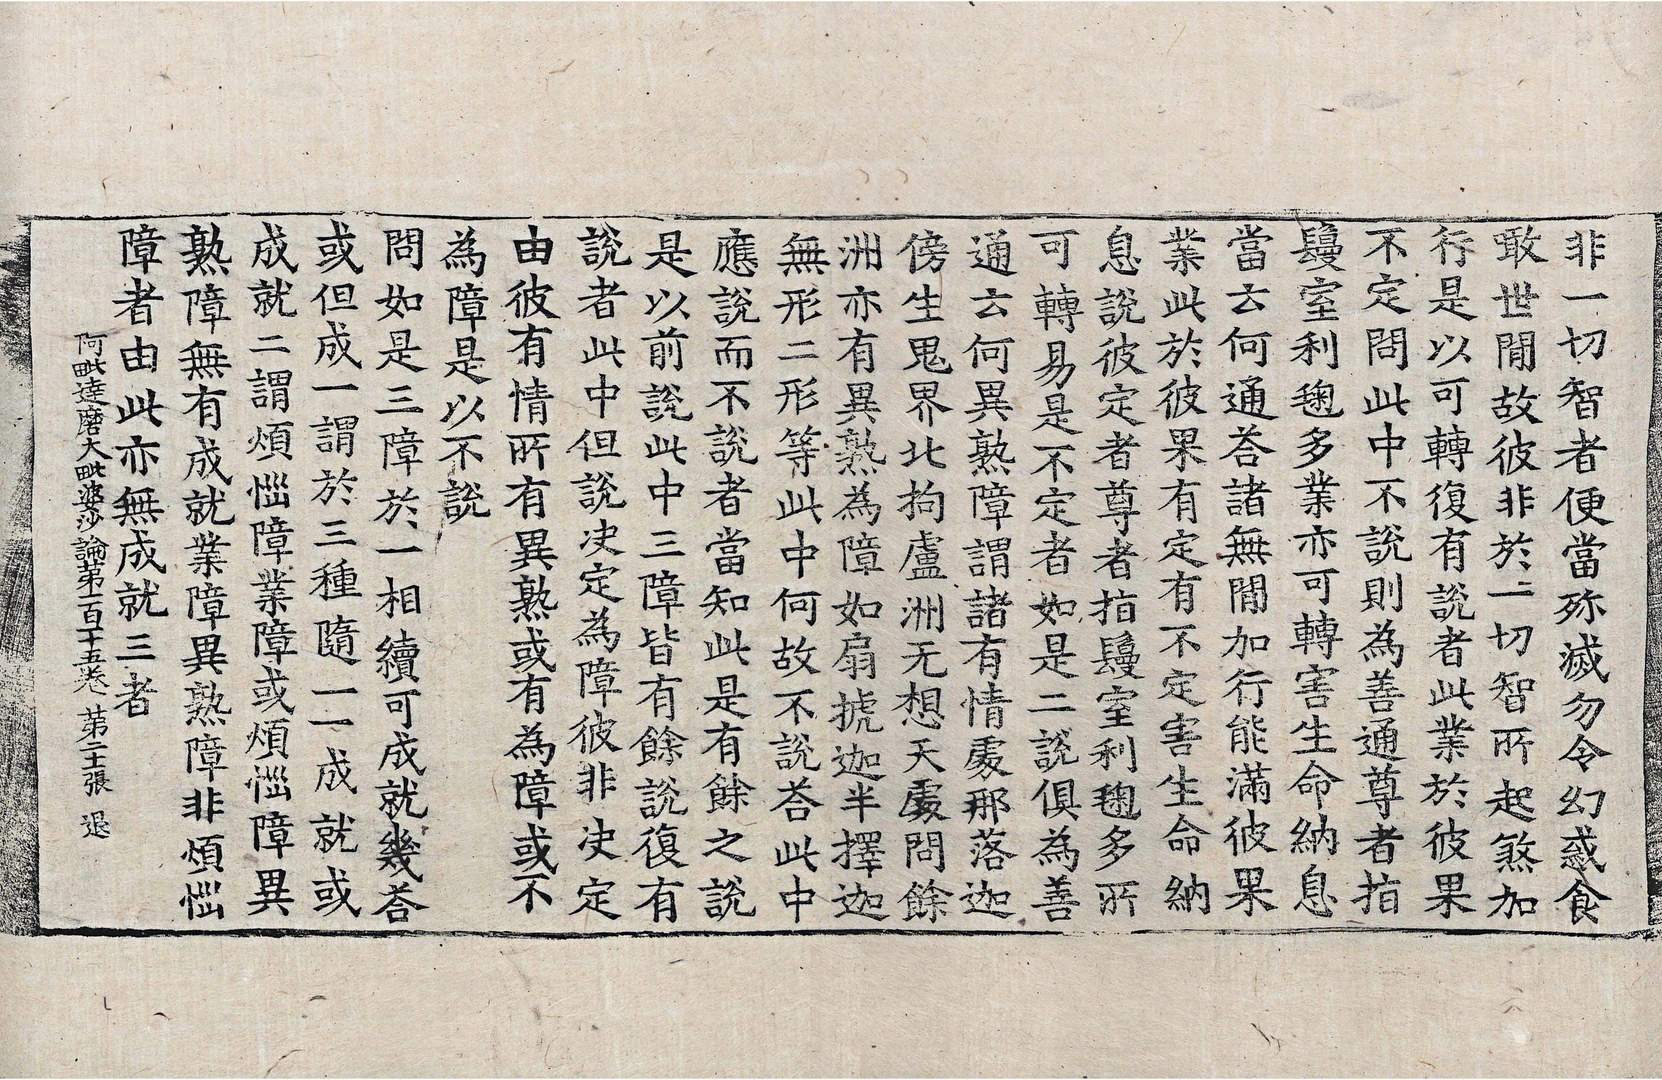 非一切智者便當殄滅勿令幻惑食
敢世閒故彼非於一切智所起煞加
行是以可轉復有說者此業於彼果
不定問此中不說則為善通尊者指
鬘室利毱多業亦可轉害生命納息
當云何通荅諸無閒加行能滿彼果
業此於彼果有定有不定害生命納
息說彼定者尊者指鬘室利毱多所
可轉易是不定者如是二說俱為善
通云何異熟障謂諸有情處那落迦
傍生鬼界北拘盧洲无想天處問餘
洲亦有異熟為障如扇搋迦半擇迦
無形二形等此中何故不說荅此中
應說而不說者當知此是有餘之說
是以前說此中三障皆有餘說復有
說者此中但說决定為障彼非决定
由彼有情所有異熟或有為障或不
為障是以不說
問如是三障於一相續可成就幾荅
或但成一謂於三種隨一一成就或
成就二謂煩惱障業障或煩惱障異
熟障無有成就業障異熟障非煩惱
障者由此亦無成就三者
阿毗達磨大毗婆沙論第一百十五卷 第二十張 退